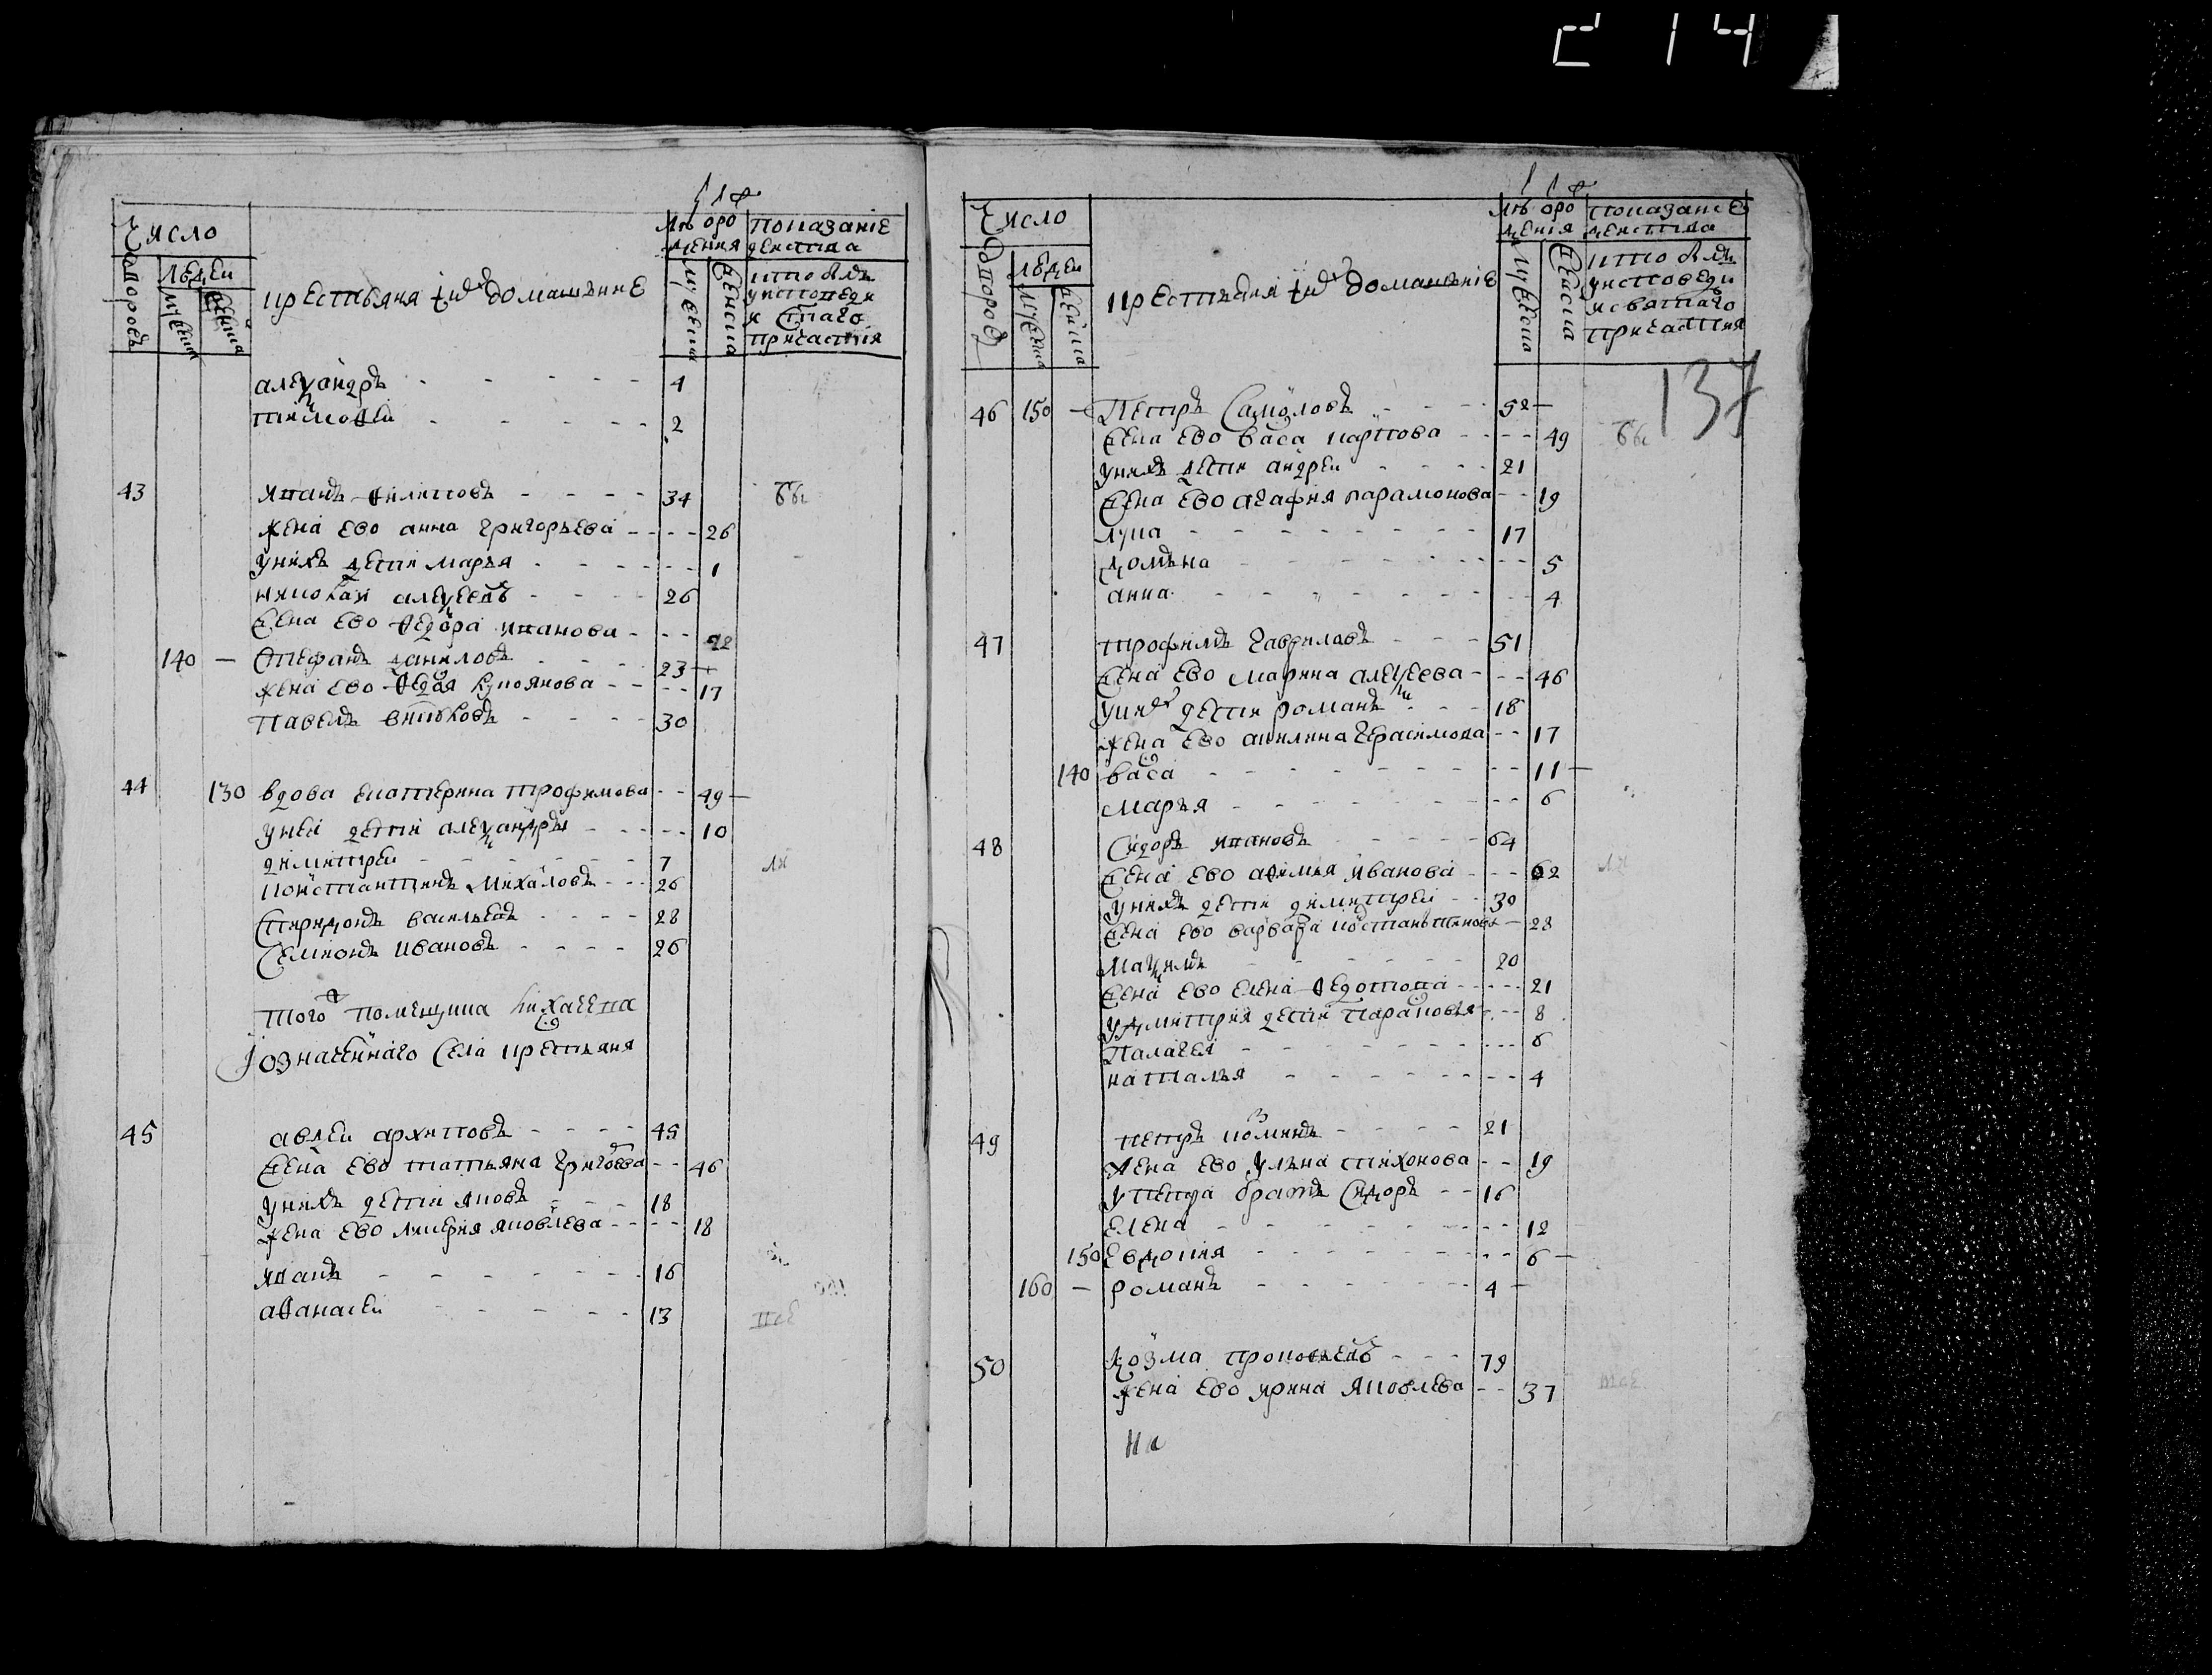 214
Число
дворовъ
людей
мужеска
женска
крестьяня и ихъ домашние
лѣто от рожения
мужеска
женска
показание действа
кто былъ у исповеди и святаго причастия
александръ - - - - - - 4
тимофеи - - - - - - 2
43 иванъ филиповъ - - - - 34 бы
жена ево анна григорьева - - - - 26
у нихъ дети марья - - - - - - 1
николаи алексеевъ - - - - 26
жена ево федора иванова - - - 22
140 — Стефанъ даниловъ - - - - 23 —
жена ево федося куполнова - - - - 17
павелъ - - - - 30
44 130 вдова екатерина трофимова - - 49 —
у неи дети александры - - - - - 10
димитреи - - - - - - - 7
константинъ михаиловъ - - - 26
Спиридонъ васильевъ - - - - 28
Семионъ ивановъ - - - - 26
того помещика Лихачева
означеннаго Села крестьяня
45 авдеи архиповъ - - - - 45
жена ево татьяна григорева - - 46
у нихъ дети яковъ - - - - 18
жена ево лукерия яковлева - - - - 18
иванъ - - - - - - - 16
афанасеи - - - - - - 13
137
Число
дворовъ
людей
мужеска
женска
крестьяня и ихъ домашние
лѣто от рожения
мужеска
женска
показание действа
кто былъ у исповеди и святаго причастия
46 150 — Петръ Самоиловъ - - - - 52 —
жена ево васа карпова - - - - 49 бы
у нихъ дети андреи - - - - 21
жена ево агафия парамонова - - 19
лука - - - - - - - - 17
домъна - - - - - - - - - 5
анна - - - - - - - - - 4
47 трофимъ гавриловъ - - - 51
жена ево марина алексеева - - - 46
у нихъ дети романъ - - - 18
жена ево акилина герасимова - - 17
140 васа - - - - - - - - - 11 —
марья - - - - - - - - - 6
48 Сидоръ ивановъ - - - - - 64
жена ево афимия иванова - - - - 62
у нихъ дети димитреи - - 30
жена ево варвара константинова - 28
максимъ - - - - - - 20
жена ево елена федотова - - - - - 21
у дмитрия дети парасковья - - - 8
палагея - - - - - - - - - - - 6
наталья - - - - - - - - - 4
49 петръ козминъ - - - - - 21
жена ево ульяна тихонова - - 19
у петра братъ Сидоръ - - 16
елена - - - - - - - - - - 12
150 евдокия - - - - - - - - - 6 —
160 — романъ - - - - - - - 4 —
50 козма прокофьевъ - - - 79
жена ево ирина яковлева - - 37